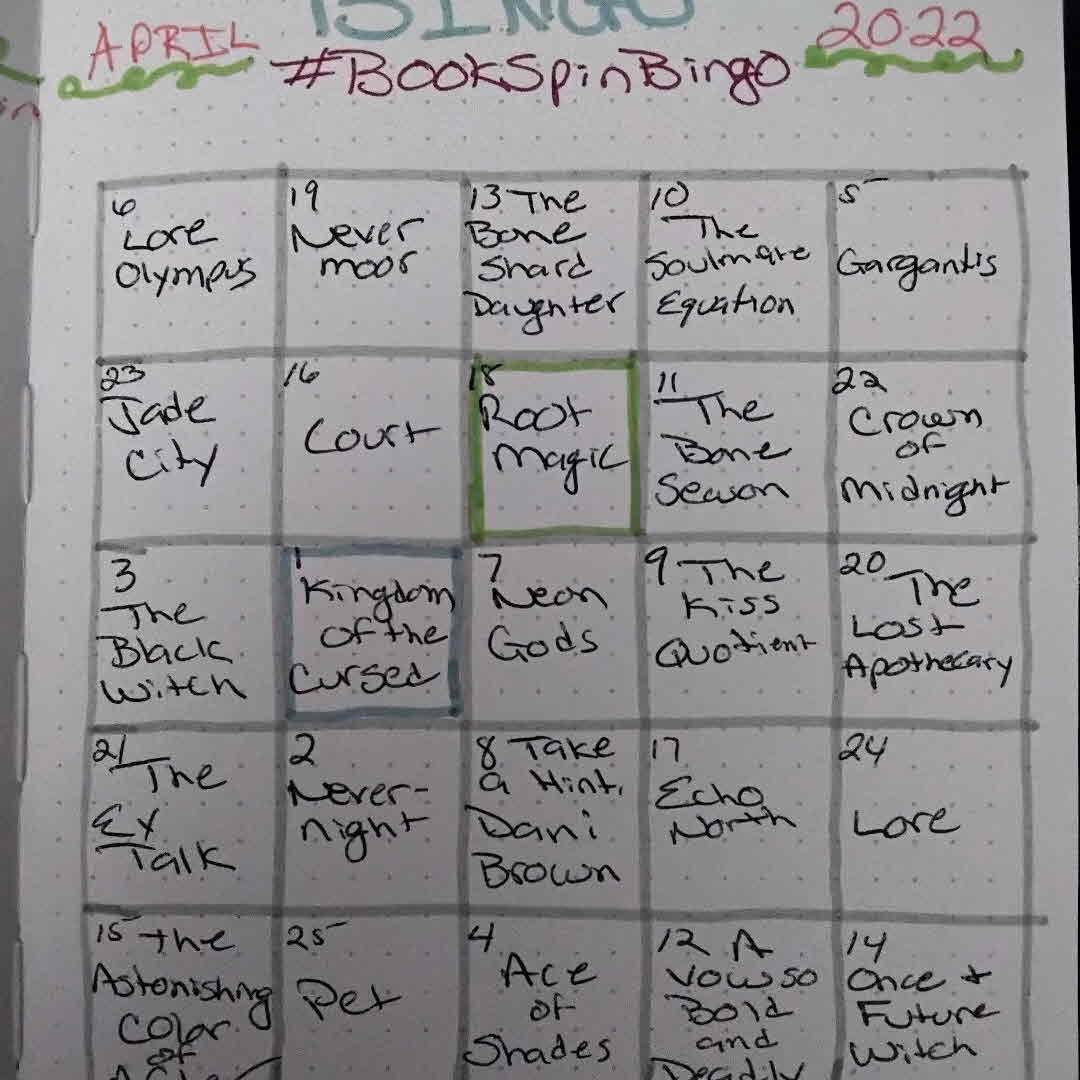 BINGO
APRIL
2022
#BookSpinBingo
6
Lore
Olympus
19
Never
moor
13 The
Bone
Shard
Daughter
10
The
Soulmate
Equation
5
Gargantis
23
Jade
City
16
Court
18
Root
Magic
11
The
Bone
Season
22
Crown
of
Midnight
3
The
Black
Witch
1
Kingdom
of the
Cursed
7
Neon
Gods
9 The
Kiss
Quotient
20
The
Lost
Apothecary
21 The
Ex
Talk
2
Never-
night
8 Take
a Hint,
Dani
Brown
17
Echo
North
24
Lore
15 The
Astonishing
Color
of
25
Pet
4
Ace
of
Shades
12 A
Vow so
Bold
and
Deadly
14
Once +
Future
Witch